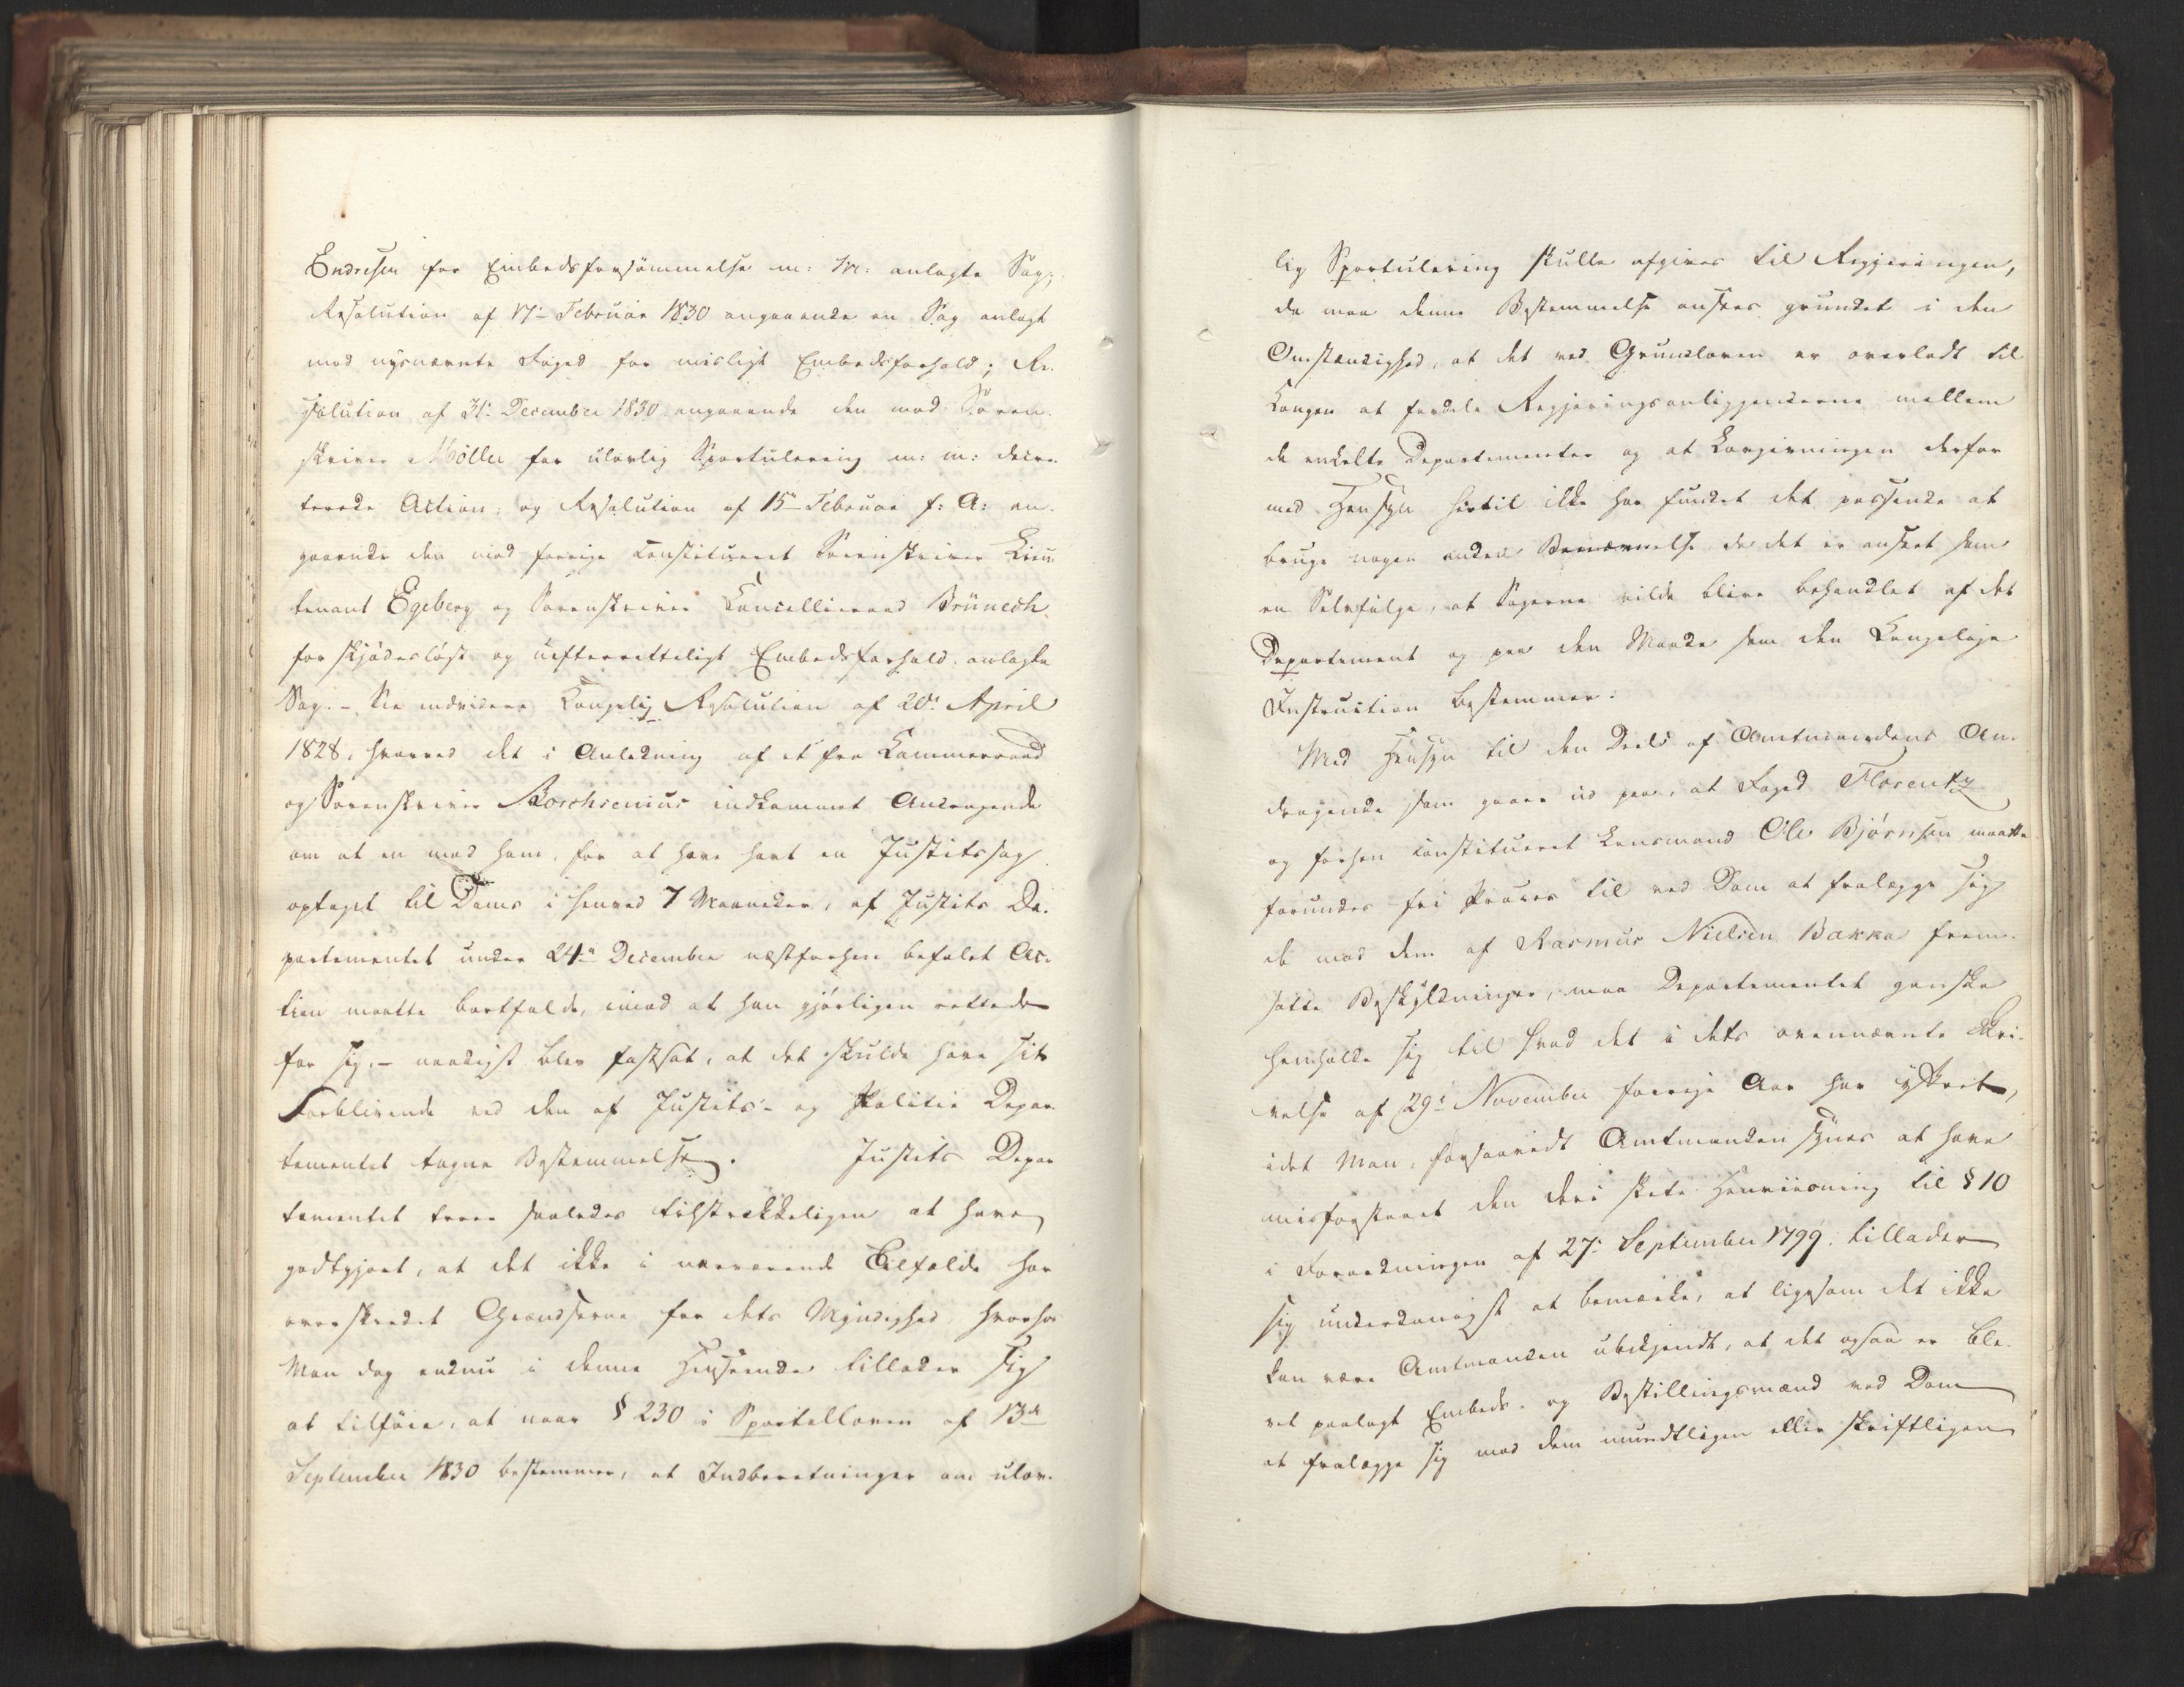 Endresen for Embedsforsømmelse m: M: anlagte Sag;
Resolution af 17de Februar 1830 angaaende en Sag anlagt
mod nysnævnte Foged for misligt Embedsforhold; Re-
solution af 31te December 1830 angaaende den mod Soren-
skriver Möller for ulovlig Sportulering m: m: decre-
terede Action; og Resolution af 15de Februar f: A: an-
gaaende den mod forrige constitueret Sorenskriver Lieu-
tenant Egeberg og Sorenskriver Cancellieraad Brünech
for skjødesløst og uefterretteligt Embedsforhold anlagte
Sag. - See endvidere Kongelig Resolution af 20de April
1828, hvorved det i Anledning af et fra Kammerraad
og Sorenskriver Borchsenius indkommet Andragende
om at en mod ham, for at have havt en Justitssag
optaget til Doms i henved 7 Maaneder, af Justits De-
partementet under 24de December næstforhen befalet Ac-
tion maatte bortfalde, imod at han gjørligen rettede
for sig, - naadigst blev fastsat, at det skulde have sit
Forblivende ved den af Justits- og Politie Depar-
tementet tagne Bestemmelse. Justits Depar-
tementet troer saaledes tilstrækkeligen at have
godtgjort, at det ikke i nærværende Tilfælde har
overskredet Grændserne for dets Myndighed, hvorhos
Man dog endnu i denne Henseende tillader sig
at tilføie, at naar § 230 i Sportelloven af 13de
September 1830 bestemmer, at Indberetninger om ulov-
lig Sportulering skulle afgives til Regjeringen,
da maa denne Bestemmelse ansees grundet i den
Omstændighed, at det ved Grundloven er overladt til
Kongen at fordele Regjeringsanliggenderne mellem
de enkelte Departementer og at Lovgivningen derfor
med Hensyn hertil ikke har fundet det passende at
bruge nogen anden Benævnelse, da det er anseet som
en Selvfølge, at Sagerne vilde blive behandlet af det
Departement og paa den Maade som den Kongelige
Instruction bestemmer.
Med Hensyn til den Deel af Amtmandens An-
dragende som gaaer ud paa, at Foged Florentz
og forhen constitueret Lensmand Ole Bjørnsen maatte
forundes fri Proces til ved Dom at fralægge sig
de mod dem af Rasmus Nielsen Bakka frem-
satte Beskyldninger, maa Departementet ganske
henholde sig til hvad det i dets ovennævnte Skri-
velse af 29de November forrige Aar har yttret,
idet Man, forsaavidt Amtmanden synes at have
misforstaaet den deri skete Henviisning til § 10
i Forordningen af 27de September 1799, tillader
sig underdanigst at bemærke, at ligesom det ikke
kan være Amtmanden ubekjendt, at det ogsaa er ble-
vet paalagt Embeds- og Bestillingsmænd ved Dom
at fralægge sig mod dem mundtligen eller skriftligen